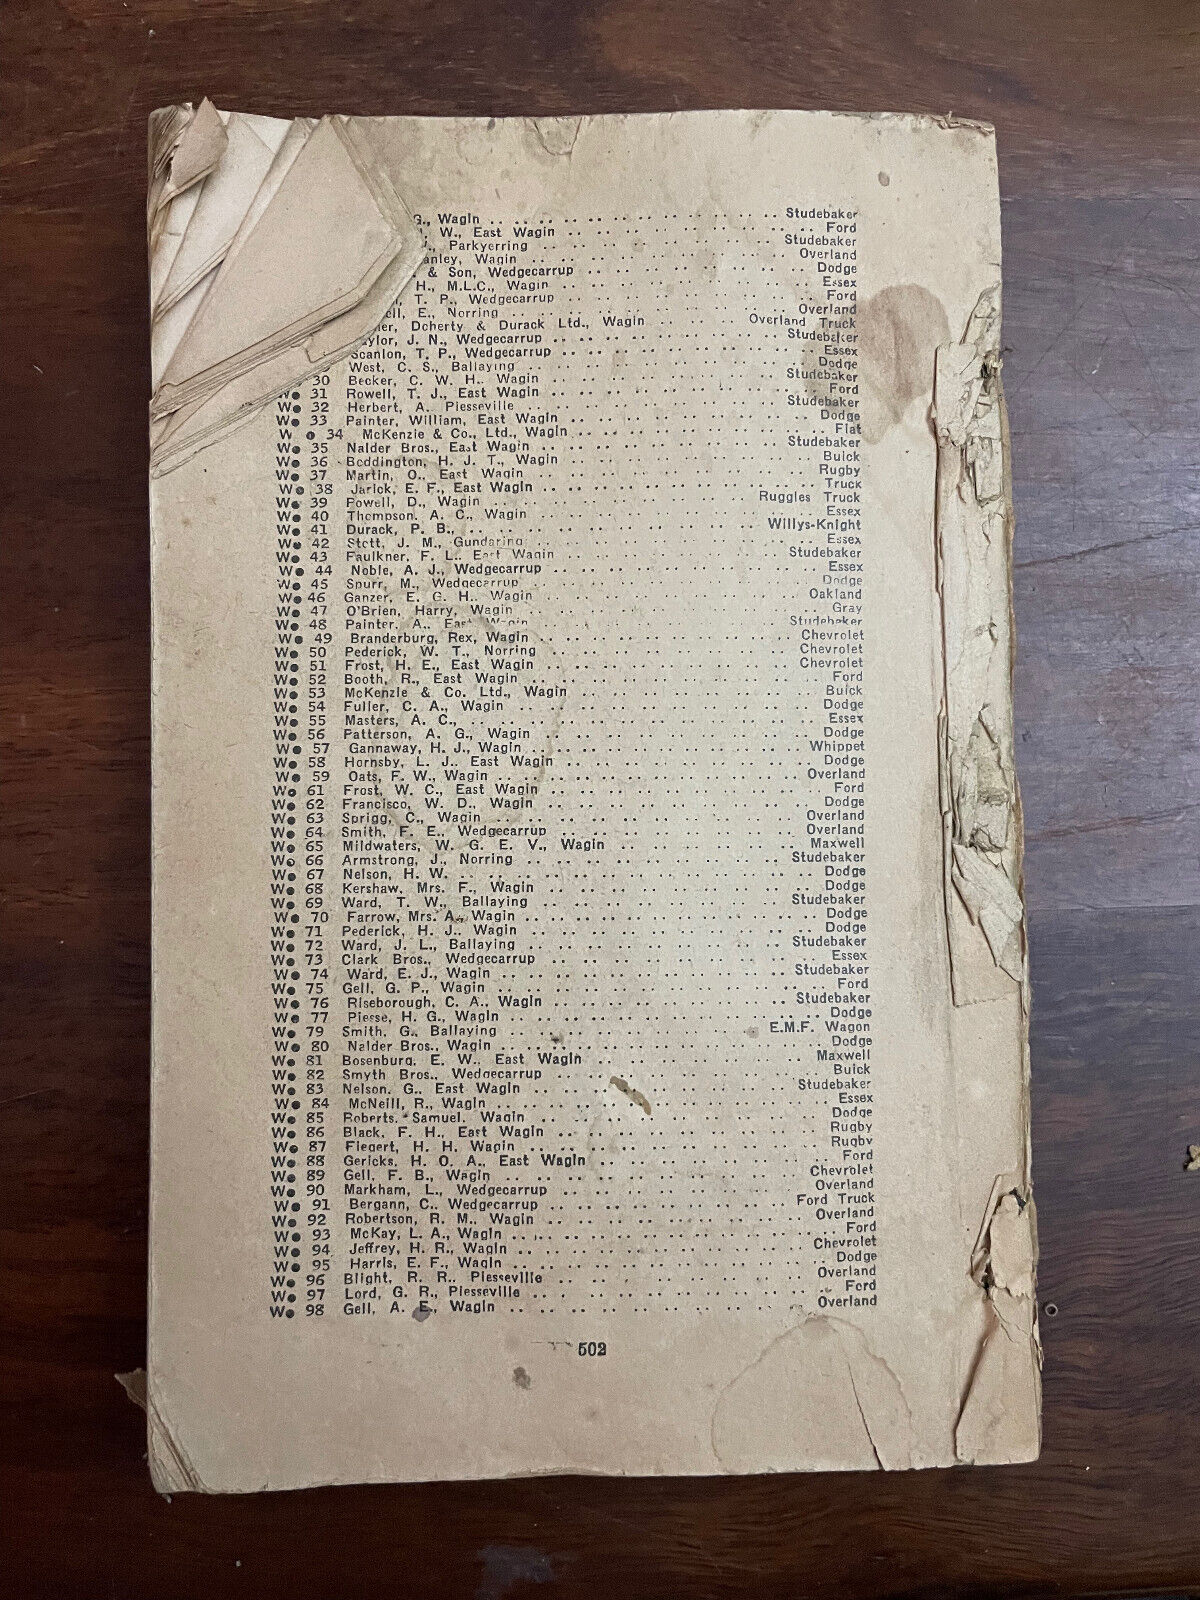 G., Wagin .. .. .. .. .. .. .. .. .. .. .. Studebaker
W., East Wagin .. .. .. .. .. .. .. .. Ford
Parkyerring .. .. .. .. .. .. .. .. .. Studebaker
anley, Wagin .. .. .. .. .. .. .. .. .. Overland
& Son, Wedgecarrup .. .. .. .. .. .. .. Dodge
H., M.L.C., Wagin .. .. .. .. .. .. .. .. Essex
T. P., Wedgecarrup .. .. .. .. .. .. .. Ford
ell, E., Norring .. .. .. .. .. .. .. .. .. Overland
er, Doherty & Durack Ltd., Wagin .. .. .. Overland Truck
aylor, J. N., Wedgecarrup .. .. .. .. .. .. Studebaker
Scanlon, T. P., Wedgecarrup .. .. .. .. .. .. Essex
West, C. S., Ballaying .. .. .. .. .. .. .. Dodge
30 Becker, C. W. H.. Wagin .. .. .. .. .. .. Studebaker
W● 31 Rowell, T. J., East Wagin .. .. .. .. .. .. Ford
W● 32 Herbert, A. Piesseville .. .. .. .. .. .. .. Studebaker
W● 33 Painter, William, East Wagin .. .. .. .. .. .. Dodge
W● 34 McKenzie & Co., Ltd., Wagin .. .. .. .. .. .. Fiat
W● 35 Nalder Bros., East Wagin .. .. .. .. .. .. Studebaker
W● 36 Beddington, H. J. T., Wagin .. .. .. .. .. .. Buick
W● 37 Martin, O., East Wagin .. .. .. .. .. .. .. Rugby
W● 38 Jarick, E. F., East Wagin .. .. .. .. .. .. Truck
W● 39 Powell, D., Wagin .. .. .. .. .. .. .. Ruggles Truck
W● 40 Thompson, A. C., Wagin .. .. .. .. .. .. .. Essex
W● 41 Durack, P. B., .. .. .. .. .. .. .. .. Willys-Knight
W● 42 Stott, J. M., Gundaring .. .. .. .. .. .. .. Essex
W● 43 Faulkner, F. L., East Wagin .. .. .. .. .. .. Studebaker
W● 44 Noble, A. J., Wedgecarrup .. .. .. .. .. .. Essex
W● 45 Spurr, M., Wedgecarrup .. .. .. .. .. .. .. Dodge
W● 46 Ganzer, E. G. H., Wagin .. .. .. .. .. .. .. Oakland
W● 47 O'Brien, Harry, Wagin .. .. .. .. .. .. .. Gray
W● 48 Painter, A., East Wagin .. .. .. .. .. .. .. Studebaker
W● 49 Branderburg, Rex, Wagin .. .. .. .. .. .. .. Chevrolet
W● 50 Pederick, W. T., Norring .. .. .. .. .. .. .. Chevrolet
W● 51 Frost, H. E., East Wagin .. .. .. .. .. .. .. Chevrolet
W● 52 Booth, R., East Wagin .. .. .. .. .. .. .. Ford
W● 53 McKenzie & Co. Ltd., Wagin .. .. .. .. .. .. Buick
W● 54 Fuller, C. A., Wagin .. .. .. .. .. .. .. .. Dodge
W● 55 Masters, A. C., .. .. .. .. .. .. .. .. .. Essex
W● 56 Patterson, A. G., Wagin .. .. .. .. .. .. .. Dodge
W● 57 Gannaway, H. J., Wagin .. .. .. .. .. .. .. Whippet
W● 58 Hornsby, L. J.. East Wagin .. .. .. .. .. .. Dodge
W● 59 Oats, F. W., Wagin .. .. .. .. .. .. .. .. Overland
W● 61 Frost, W. C., East Wagin .. .. .. .. .. .. .. Ford
W● 62 Francisco, W. D., Wagin .. .. .. .. .. .. .. Dodge
W● 63 Sprigg, C., Wagin .. .. .. .. .. .. .. .. Overland
W● 64 Smith, F. E., Wedgecarrup .. .. .. .. .. .. Overland
W● 65 Mildwaters, W. G. E. V., Wagin .. .. .. .. .. Maxwell
W● 66 Armstrong, J., Norring .. .. .. .. .. .. .. Studebaker
W● 67 Nelson, H. W. .. .. .. .. .. .. .. .. .. Dodge
W● 68 Kershaw, Mrs. F., Wagin .. .. .. .. .. .. .. Dodge
W● 69 Ward, T. W., Ballaying .. .. .. .. .. .. .. Studebaker
W● 70 Farrow, Mrs. A., Wagin .. .. .. .. .. .. .. Dodge
W● 71 Pederick, H. J.. Wagin .. .. .. .. .. .. .. Dodge
W● 72 Ward, J. L., Ballaying .. .. .. .. .. .. .. Studebaker
W● 73 Clark Bros., Wedgecarrup .. .. .. .. .. .. Essex
W● 74 Ward, E. J., Wagin .. .. .. .. .. .. .. .. Studebaker
W● 75 Gell, G. P., Wagin .. .. .. .. .. .. .. .. Ford
W● 76 Riseborough, C. A., Wagin .. .. .. .. .. .. Studebaker
W● 77 Piesse, H. G., Wagin .. .. .. .. .. .. .. .. Dodge
W● 79 Smith, G., Ballaying .. .. .. .. .. .. .. E.M.F. Wagon
W● 80 Nalder Bros., Wagin .. .. .. .. .. .. .. .. Dodge
W● 81 Bosenburg, E. W., East Wagin .. .. .. .. .. Maxwell
W● 82 Smyth Bros., Wedgecarrup .. .. .. .. .. .. Buick
W● 83 Nelson, G., East Wagin .. .. .. .. .. .. .. Studebaker
W● 84 McNeill, R., Wagin .. .. .. .. .. .. .. .. Essex
W● 85 Roberts, Samuel, Wagin .. .. .. .. .. .. .. Dodge
W● 86 Black, F. H., East Wagin .. .. .. .. .. .. .. Rugby
W● 87 Fiegert, H. H. Wagin .. .. .. .. .. .. .. .. Rugby
W● 88 Gericks, H. O. A., East Wagin .. .. .. .. .. Ford
W● 89 Gell, F. B., Wagin .. .. .. .. .. .. .. .. Chevrolet
W● 90 Markham, L., Wedgecarrup .. .. .. .. .. .. Overland
W● 91 Bergann, C., Wedgecarrup .. .. .. .. .. .. Ford Truck
W● 92 Robertson, R. M., Wagin .. .. .. .. .. .. .. Overland
W● 93 McKay, L. A., Wagin .. .. .. .. .. .. .. .. Ford
W● 94 Jeffrey, H. R., Wagin .. .. .. .. .. .. .. Chevrolet
W● 95 Harris, E. F., Wagin .. .. .. .. .. .. .. .. Dodge
W● 96 Blight, R. R.. Piesseville .. .. .. .. .. .. .. Overland
W● 97 Lord, G. R., Piesseville .. .. .. .. .. .. .. Ford
W● 98 Gell, A. E., Wagin .. .. .. .. .. .. .. .. Overland
502